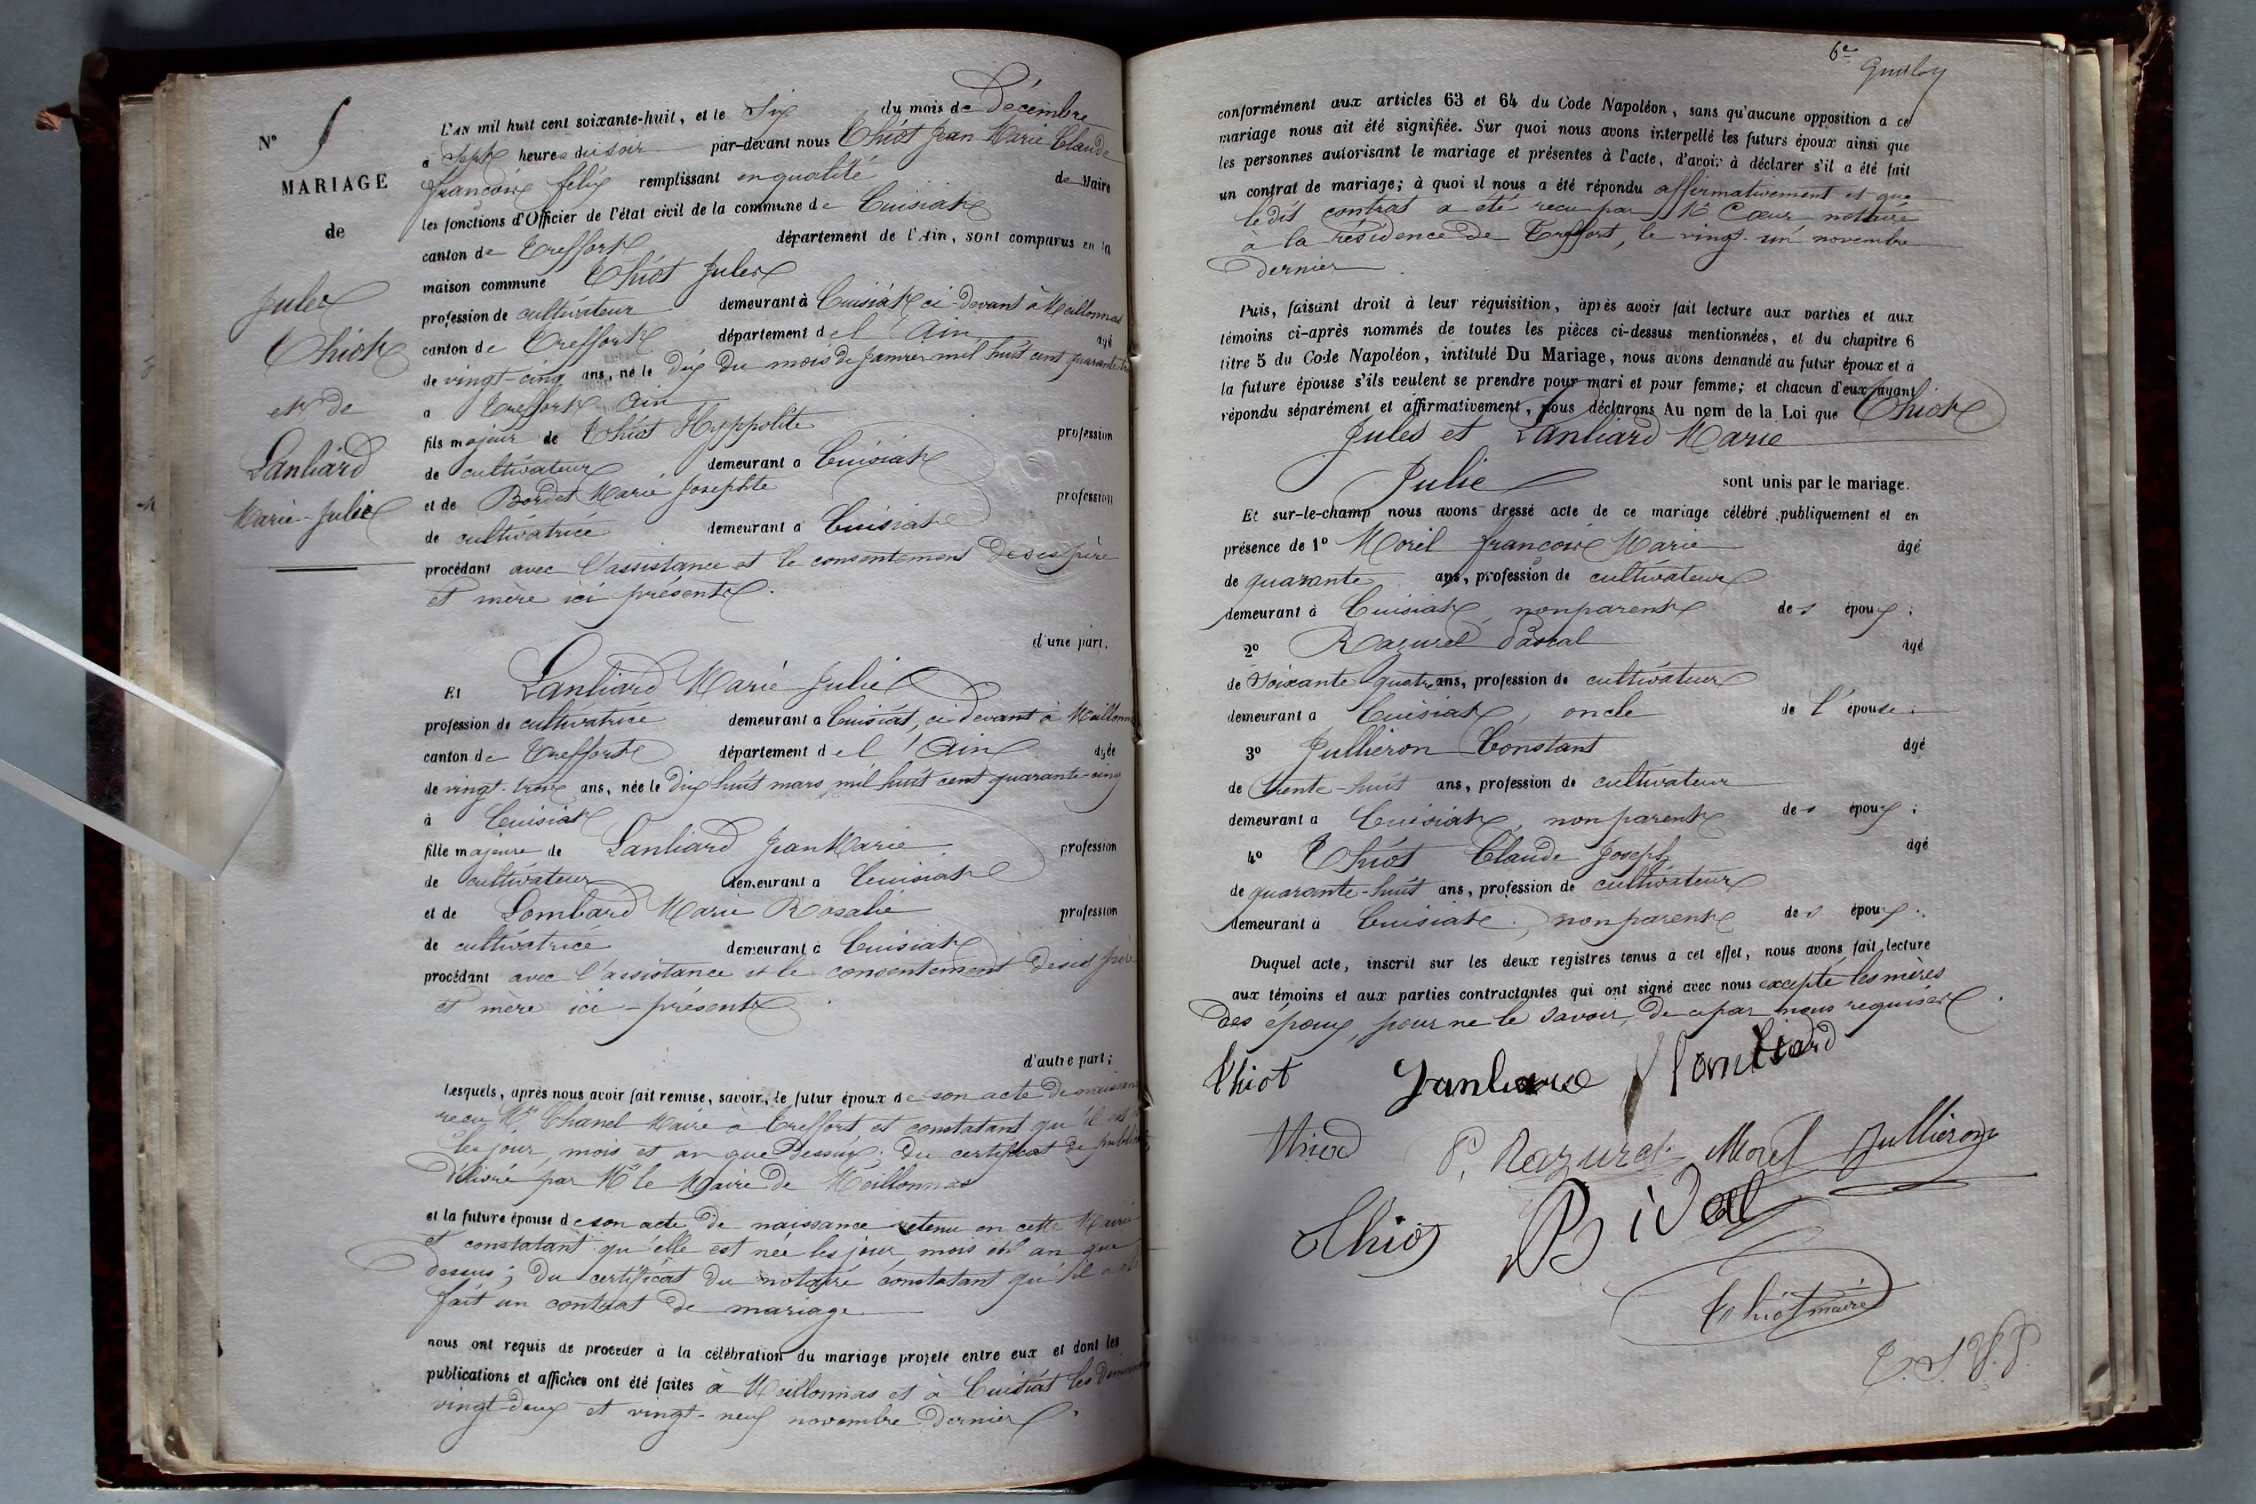 N°
MARIAGE
de
Jules
Thiot
et de
Lanliard
Marie-Julie
L'AN mil huit cent soixante-huit, et le Six du mois de Décembre
à Sept heures du soir par-devant nous Thiot Jean Marie Claude
françois félix remplissant en qualité de Maire
les fonctions d'Officier de l'état civil de la commune de Cuisiat
canton de Treffort département de l'Ain, sont comparus en la
maison commune Thiot Jules
profession de cultivateur demeurant à Cuisiat ci-devant à Meillonnas
canton de Treffort département de l'Ain âgé
de vingt-cinq ans, né le dix du mois de Janvier mil huit cent quarante
à Treffort Ain
fils majeur de Thiot Hyppolite profession
de cultivateur demeurant à Cuisiat
et de Bordet Marie Josephte profession
de cultivatrice demeurant à Cuisiat
procédant avec l'assistance et le consentement de ses père
et mère ici présents.
d'une part.
Et Lanliard Marie Julie
profession de cultivatrice demeurant à Cuisiat, ci devant à Meillonnas
canton de Treffort département de l'Ain âgée
de vingt-trois ans, née le dix huit mars mil huit cent quarante-cinq
à Cuisiat
fille majeure de Lanliard Jean Marie profession
de cultivateur demeurant à Cuisiat
et de Lombard Marie Rosalie profession
de cultivatrice demeurant à Cuisiat
procédant avec l'assistance et le consentement de ses père
et mère ici-présents.
d'autre part;
Lesquels, après nous avoir fait remise, savoir, le futur époux de son acte de naissance
reçu Mr Chanel Maire à Treffort et constatant qu'il est
les jour, mois et an que dessus; du certificat de
délivré par Mr le Maire de Meillonnas
et la future épouse de son acte de naissance retenu en cette Mairie
et constatant qu'elle est née les jour, mois et an que
dessus; du certificat du notaire constatant qu'il a été
fait un contrat de mariage
nous ont requis de procéder à la célébration du mariage projeté entre eux et dont les
publications et affiches ont été faites à Meillonnas et à Cuisiat les
vingt-deux et vingt-neuf novembre dernier.
6e
conformément aux articles 63 et 64 du Code Napoléon, sans qu'aucune opposition à ce
mariage nous ait été signifiée. Sur quoi nous avons interpellé les futurs époux ainsi que
les personnes autorisant le mariage et présentes à l'acte, d'avoir à déclarer s'il a été fait
un contrat de mariage; à quoi il nous a été répondu affirmativement et que
ledit contrat a été reçu par Me Cœur notaire
à la résidence de Treffort, le vingt-un novembre
dernier.
Puis, faisant droit à leur réquisition, après avoir fait lecture aux parties et aux
témoins ci-après nommés de toutes les pièces ci-dessus mentionnées, et du chapitre 6
titre 5 du Code Napoléon, intitulé Du Mariage, nous avons demandé au futur époux et à
la future épouse s'ils veulent se prendre pour mari et pour femme; et chacun d'eux ayant
répondu séparément et affirmativement, nous déclarons Au nom de la Loi que Thiot
Jules et Lanliard Marie
Julie sont unis par le mariage.
Et sur-le-champ nous avons dressé acte de ce mariage célébré publiquement et en
présence de 1° Morel françois Marie âgé
de quarante ans, profession de cultivateur
demeurant à Cuisiat, non parent des époux;
2° Razurel Pascal âgé
de Soixante quatre ans, profession de cultivateur
demeurant à Cuisiat, oncle de l'épouse.
3° Jullieron Constant âgé
de trente-huit ans, profession de cultivateur
demeurant à Cuisiat, non parent des époux;
4° Thiot Claude Joseph âgé
de quarante-huit ans, profession de cultivateur
demeurant à Cuisiat, non parent des époux.
Duquel acte, inscrit sur les deux registres tenus à cet effet, nous avons fait lecture
aux témoins et aux parties contractantes qui ont signé avec nous excepté les mères
des époux, pour ne le savoir, de ce par nous requises.
Thiot Lanliard
Thiot P. Razurel Morel Jullieron
Thiot Bidal
Thiot maire
T.S.V.P.